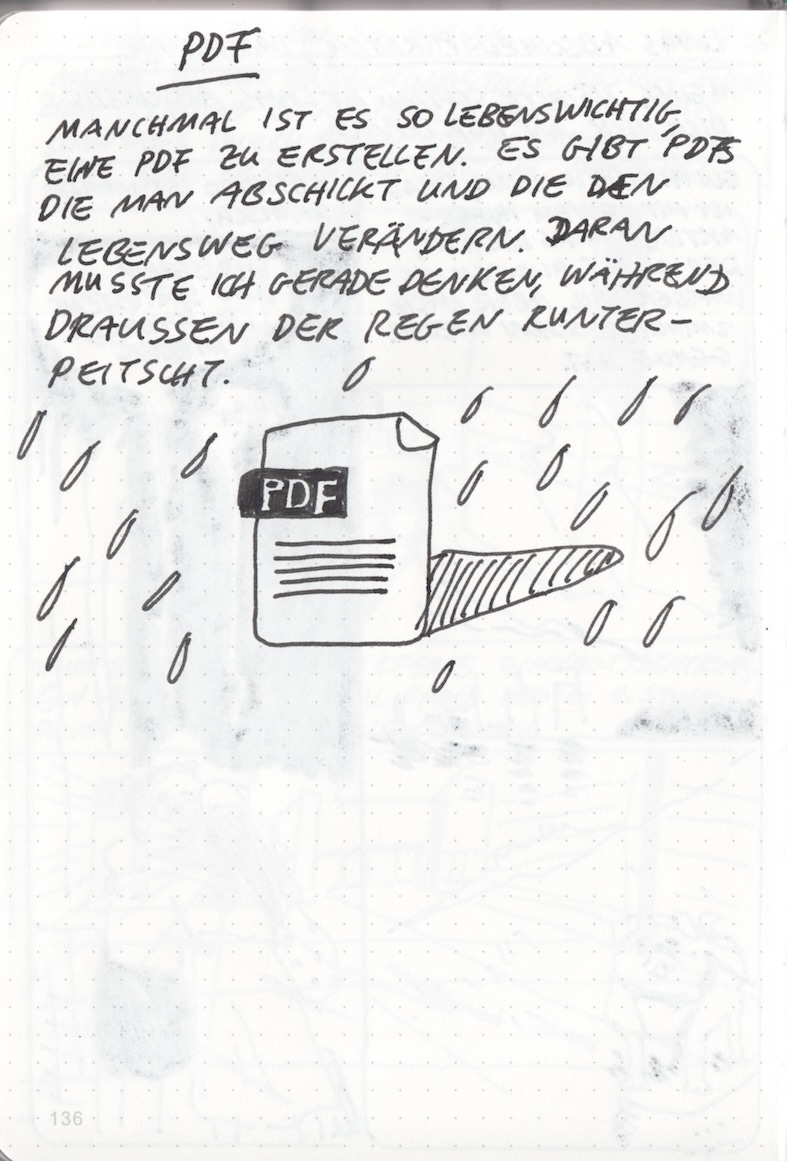 PDF
MANCHMAL IST ES SO LEBENSWICHTIG,
EINE PDF ZU ERSTELLEN. ES GIBT PDFS
DIE MAN ABSCHICKT UND DIE DEN
LEBENSWEG VERÄNDERN. DARAN
MUSSTE ICH GERADE DENKEN, WÄHREND
DRAUSSEN DER REGEN RUNTER-
PEITSCHT.
PDF
136